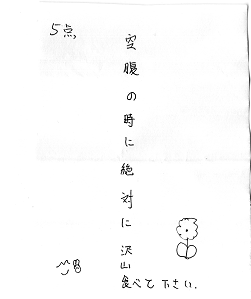 5点
空腹の時に絶対に沢山
食べて下さい.